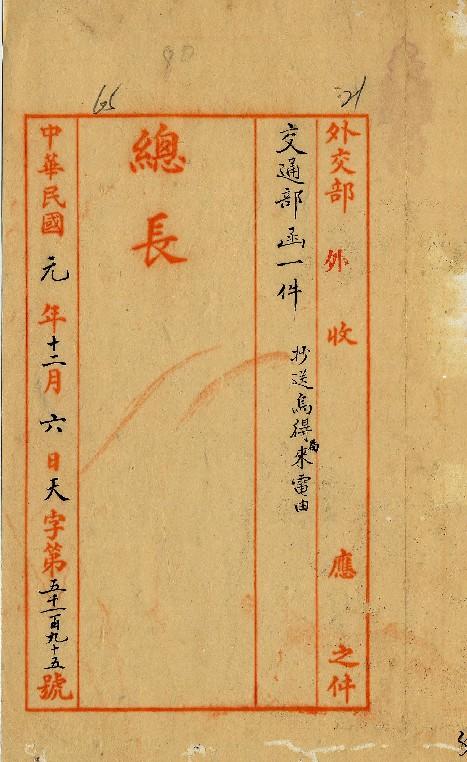 80
65
21
外交部 外 收 應 之件
交通部函一件 抄送烏得局來電由
總長
中華民國元年十二月六日天字第五千一百九十五號